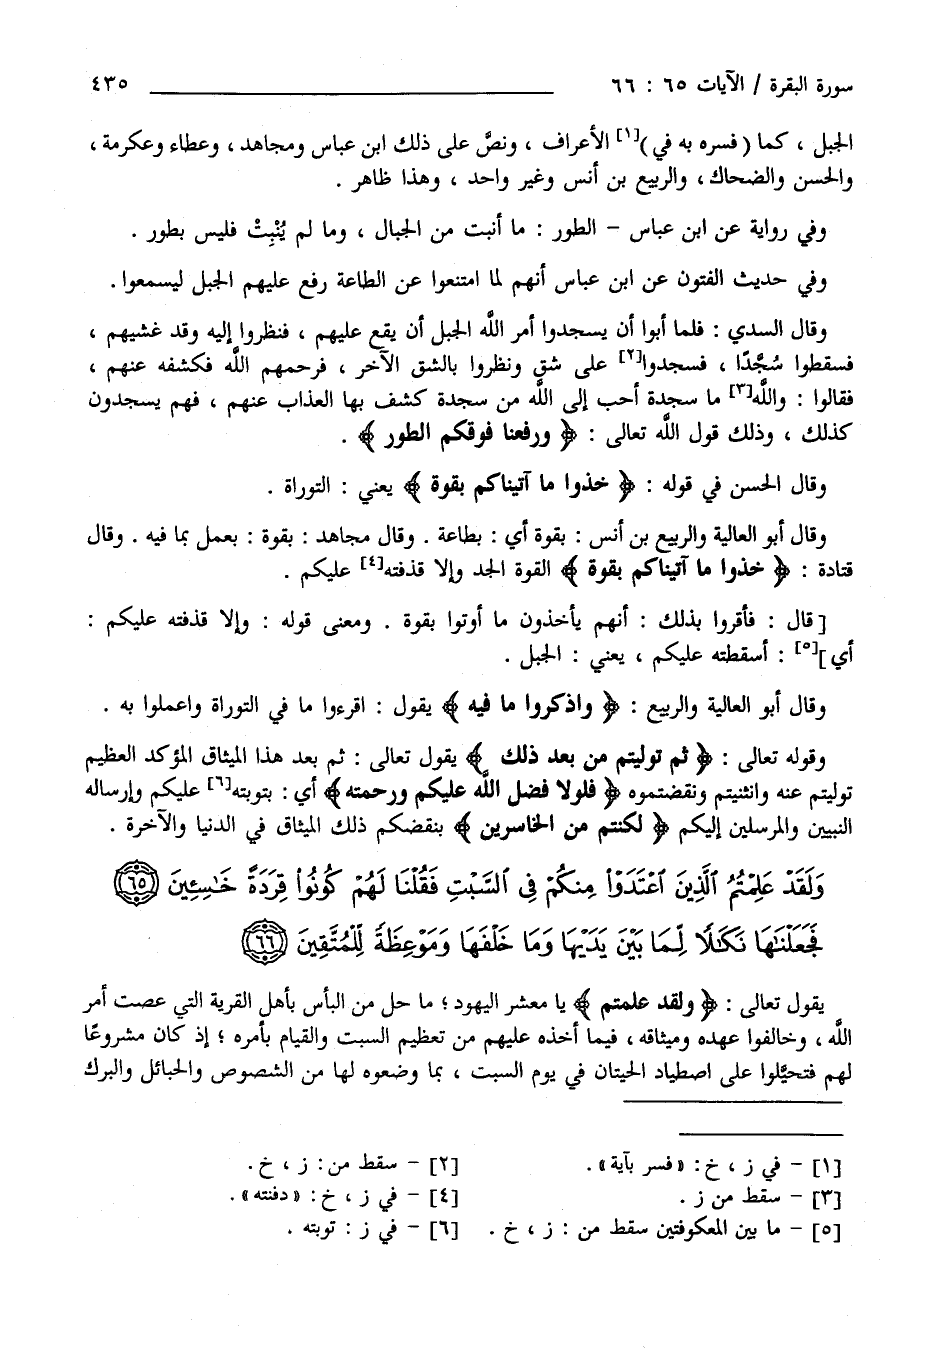 سورة البقرة / الآيات ٦٥ : ٦٦ ٤٣٥
الجبل ، كما ( فسره به في )[١] الأعراف ، ونصَّ على ذلك ابن عباس ومجاهد ، وعطاء وعكرمة ،
والحسن والضحاك ، والربيع بن أنس وغير واحد ، وهذا ظاهر .
وفي رواية عن ابن عباس – الطور : ما أنبت من الجبال ، وما لم يُنْبِتْ فليس بطور .
وفي حديث الفتون عن ابن عباس أنهم لما امتنعوا عن الطاعة رفع عليهم الجبل ليسمعوا .
وقال السدي : فلما أبوا أن يسجدوا أمر اللَّه الجبل أن يقع عليهم ، فنظروا إليه وقد غشيهم ،
فسقطوا سُجَّدًا ، فسجدوا[٢] على شق ونظروا بالشق الآخر ، فرحمهم اللَّه فكشفه عنهم ،
فقالوا : واللَّه[٣] ما سجدة أحب إلى اللَّه من سجدة كشف بها العذاب عنهم ، فهم يسجدون
كذلك ، وذلك قول اللَّه تعالى : ﴿ ورفعنا فوقكم الطور ﴾ .
وقال الحسن في قوله : ﴿ خذوا ما آتيناكم بقوة ﴾ يعني : التوراة .
وقال أبو العالية والربيع بن أنس : بقوة أي : بطاعة . وقال مجاهد : بقوة : بعمل بما فيه . وقال
قتادة : ﴿ خذوا ما آتيناكم بقوة ﴾ القوة الجد وإلا قذفته[٤] عليكم .
[ قال : فأقروا بذلك : أنهم يأخذون ما أوتوا بقوة . ومعنى قوله : وإلا قذفته عليكم :
أي ][٥] : أسقطته عليكم ، يعني : الجبل .
وقال أبو العالية والربيع : ﴿ واذكروا ما فيه ﴾ يقول : اقرءوا ما في التوراة واعملوا به .
وقوله تعالى : ﴿ ثم توليتم من بعد ذلك ﴾ يقول تعالى : ثم بعد هذا الميثاق المؤكد العظيم
توليتم عنه وانثنيتم ونقضتموه ﴿ فلولا فضل اللَّه عليكم ورحمته ﴾ أي : بتوبته[٦] عليكم وإرساله
النبيين والمرسلين إليكم ﴿ لكنتم من الخاسرين ﴾ بنقضكم ذلك الميثاق في الدنيا والآخرة .
وَلَقَدْ عَلِمْتُمُ ٱلَّذِينَ ٱعْتَدَوْا۟ مِنكُمْ فِى ٱلسَّبْتِ فَقُلْنَا لَهُمْ كُونُوا۟ قِرَدَةً خَـٰسِـِٔينَ ٦٥
فَجَعَلْنَـٰهَا نَكَـٰلًا لِّمَا بَيْنَ يَدَيْهَا وَمَا خَلْفَهَا وَمَوْعِظَةً لِّلْمُتَّقِينَ ٦٦
يقول تعالى : ﴿ ولقد علمتم ﴾ يا معشر اليهود ؛ ما حل من البأس بأهل القرية التي عصت أمر
اللَّه ، وخالفوا عهده وميثاقه ، فيما أخذه عليهم من تعظيم السبت والقيام بأمره ؛ إذ كان مشروعًا
لهم فتحيَّلوا على اصطياد الحيتان في يوم السبت ، بما وضعوه لها من الشصوص والحبائل والبرك
[١] – في ز ، خ : « فسر بآية » . [٢] – سقط من : ز ، خ .
[٣] – سقط من ز . [٤] – في ز ، خ : « دفنته » .
[٥] – ما بين المعكوفتين سقط من : ز ، خ . [٦] – في ز : توبته .